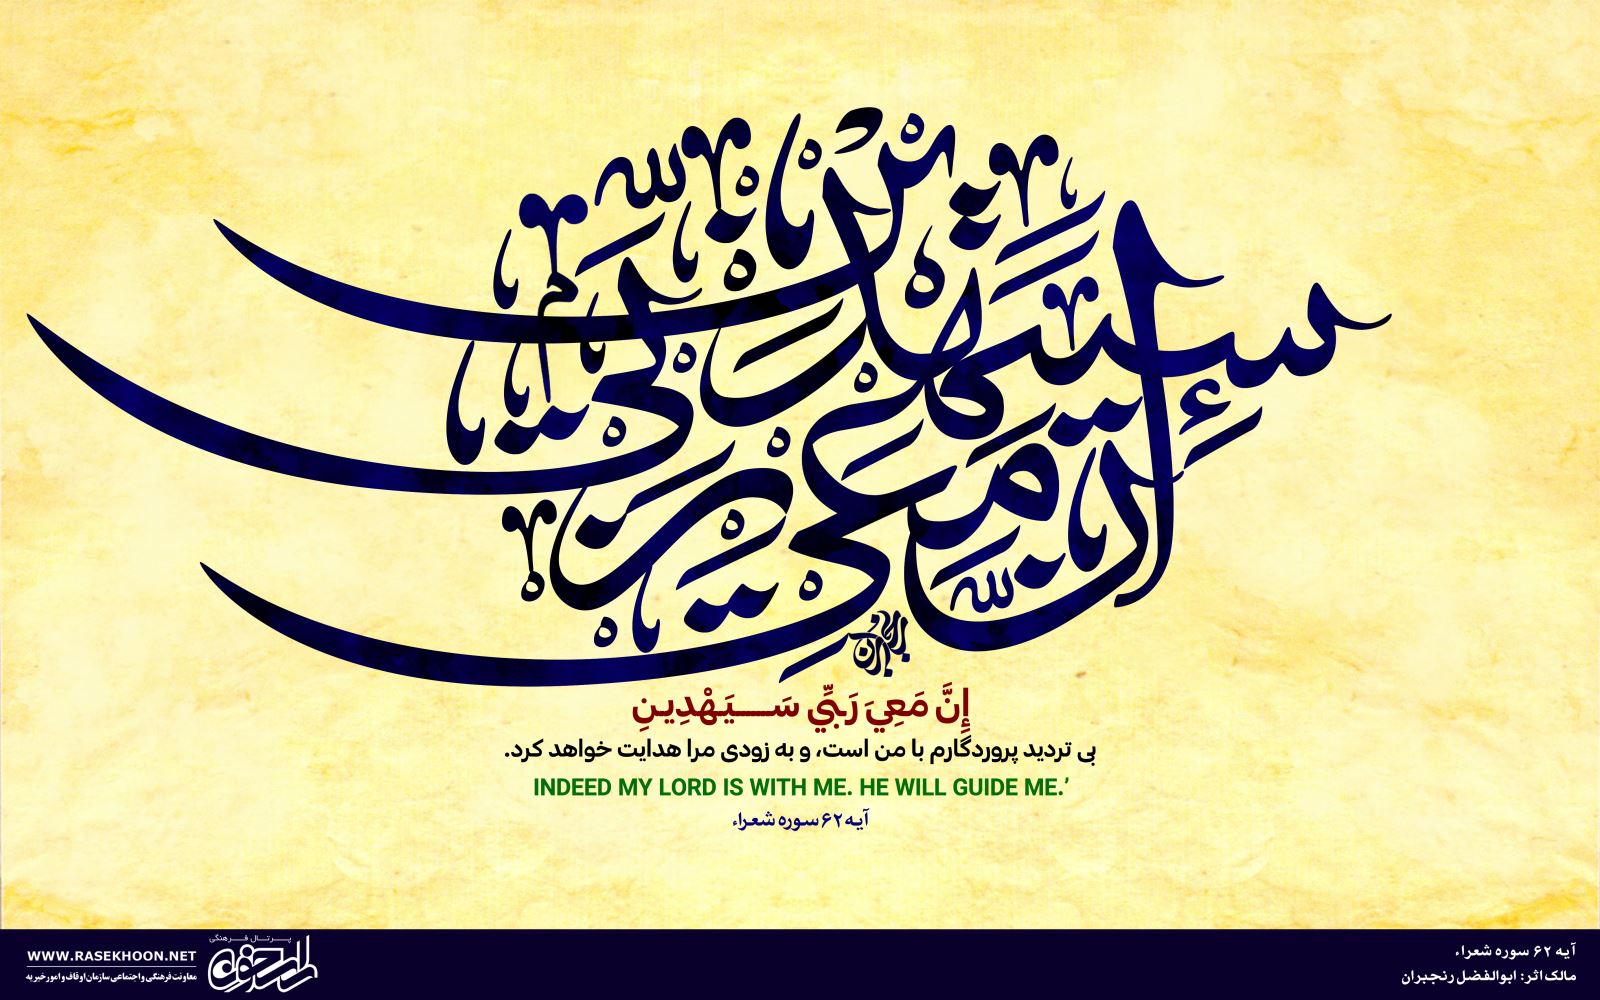 إِنَّ مَعِيَ رَبِّي سَيَهْدِينِ
إِنَّ مَعِيَ رَبِّي سَـــيَهْدِينِ
بی تردید پروردگارم با من است، و به زودی مرا هدایت خواهد کرد.
INDEED MY LORD IS WITH ME. HE WILL GUIDE ME.’
آیه ۶۲ سوره شعراء
آیه ۶۲ سوره شعراء
مالک اثر: ابوالفضل رنجبران
پرتال فرهنگی
راسخون
WWW.RASEKHOON.NET
معاونت فرهنگی و اجتماعی سازمان اوقاف و امور خیریه